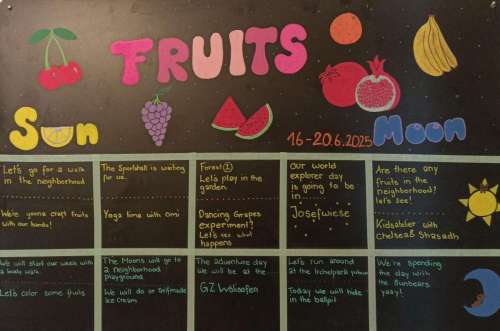 FRUITS
Sun
16-20.6.2025
Moon
Let's go for a walk
in the neighborhood
We're gonna craft fruits
with our hands!
The Sportshall is waiting
for us.
Yoga time with Omi
Forest ①
Let's play in the
garden
Dancing Grapes
experiment?
Let's see what
happens
Our world
explorer day
is going to be
in...
Josefwiese
Are there any
fruits in the
neighborhood?
let's see!
Kidsatelier with
chelsea & Shasadh
We will start our week with
a body walk
Let's color some fruits
The Moons will go to
a neighborhood
playground
We will do a selfmade
ice cream
The adventure day
we will be at the...
GZ
Let's run around
at the Irchelpark
Today we will hide
in the ballpit
We're spending
the day with
the Sunbears
yaay!